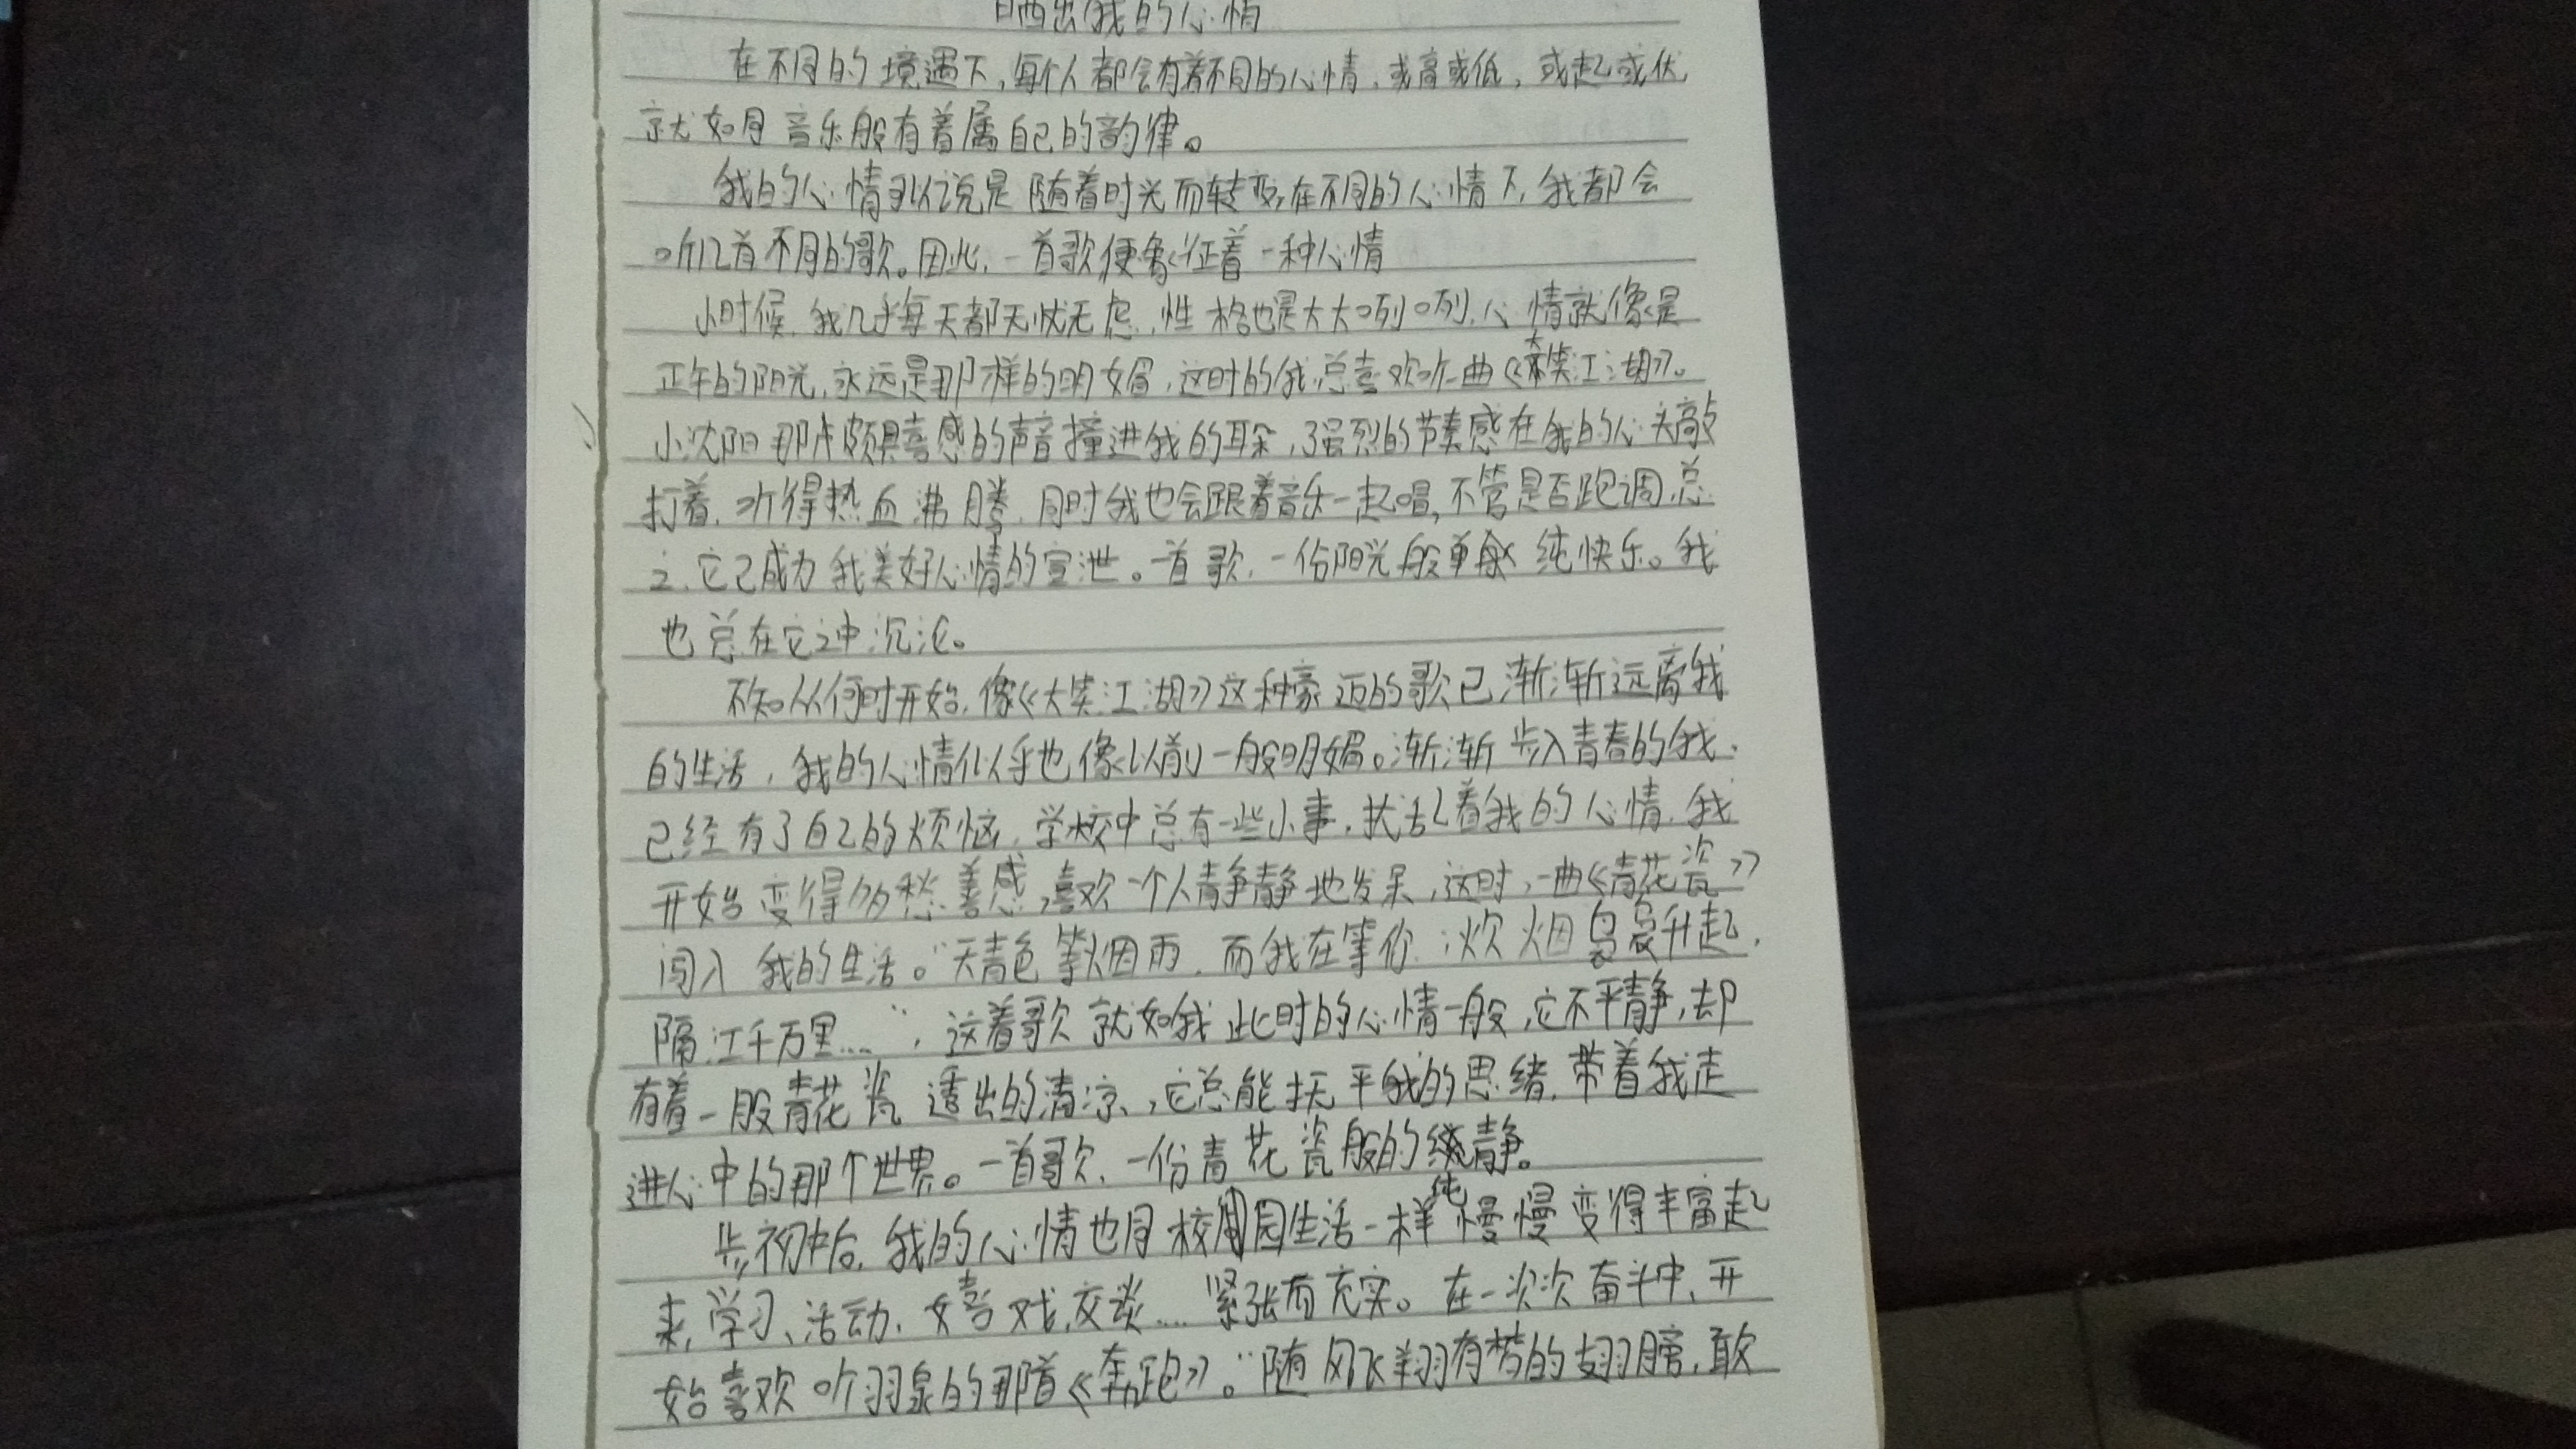 晒出我的心情
在不同的境遇下,每个人都会有着不同的心情,或高或低,或起或伏
就如同音乐般有着属自己的韵律。
我的心情可以说是随着时光而转变,在不同的心情下,我都会
听几首不同的歌。因此,一首歌便象征着一种心情
小时候,我几乎每天都无忧无虑,性格也是大大咧咧,心情就像是
正午的阳光,永远是那样的明媚,这时的我,总喜欢听一曲《大笑江湖》。
小沈阳那片颇具喜感的声音撞进我的耳朵,强烈的节奏感在我的心头敲
打着,听得热血沸腾,同时我也会跟着音乐一起唱,不管是否跑调,总
之,它已成为我美好心情的宣泄。一首歌,一份阳光般单纯快乐。我
也总在它之中沉沦。
不知从何时开始,像《大笑江湖》这种豪迈的歌已渐渐远离我
的生活,我的心情似乎也像以前一般明媚。渐渐步入青春的我,
已经有了自己的烦恼,学校中总有一些小事,扰乱着我的心情,我
开始变得多愁善感,喜欢一个人静静地发呆,这时,一曲《青花瓷》
闯入我的生活。“天青色等烟雨,而我在等你,炊烟袅袅升起,
隔江千万里....”,这着歌就如我此时的心情一般,它不平静,却
有着一股青花瓷透出的清凉,它总能抚平我的思绪,带着我走
进心中的那个世界。一首歌,一份青花瓷般的纯静。
步初中后,我的心情也同校园生活一样慢慢变得丰富起
来,学习、活动、嬉戏,交谈....紧张而充实。在一次次奋斗中,开
始喜欢听羽泉的那首《奔跑》。“随风飞翔有梦的翅膀,敢